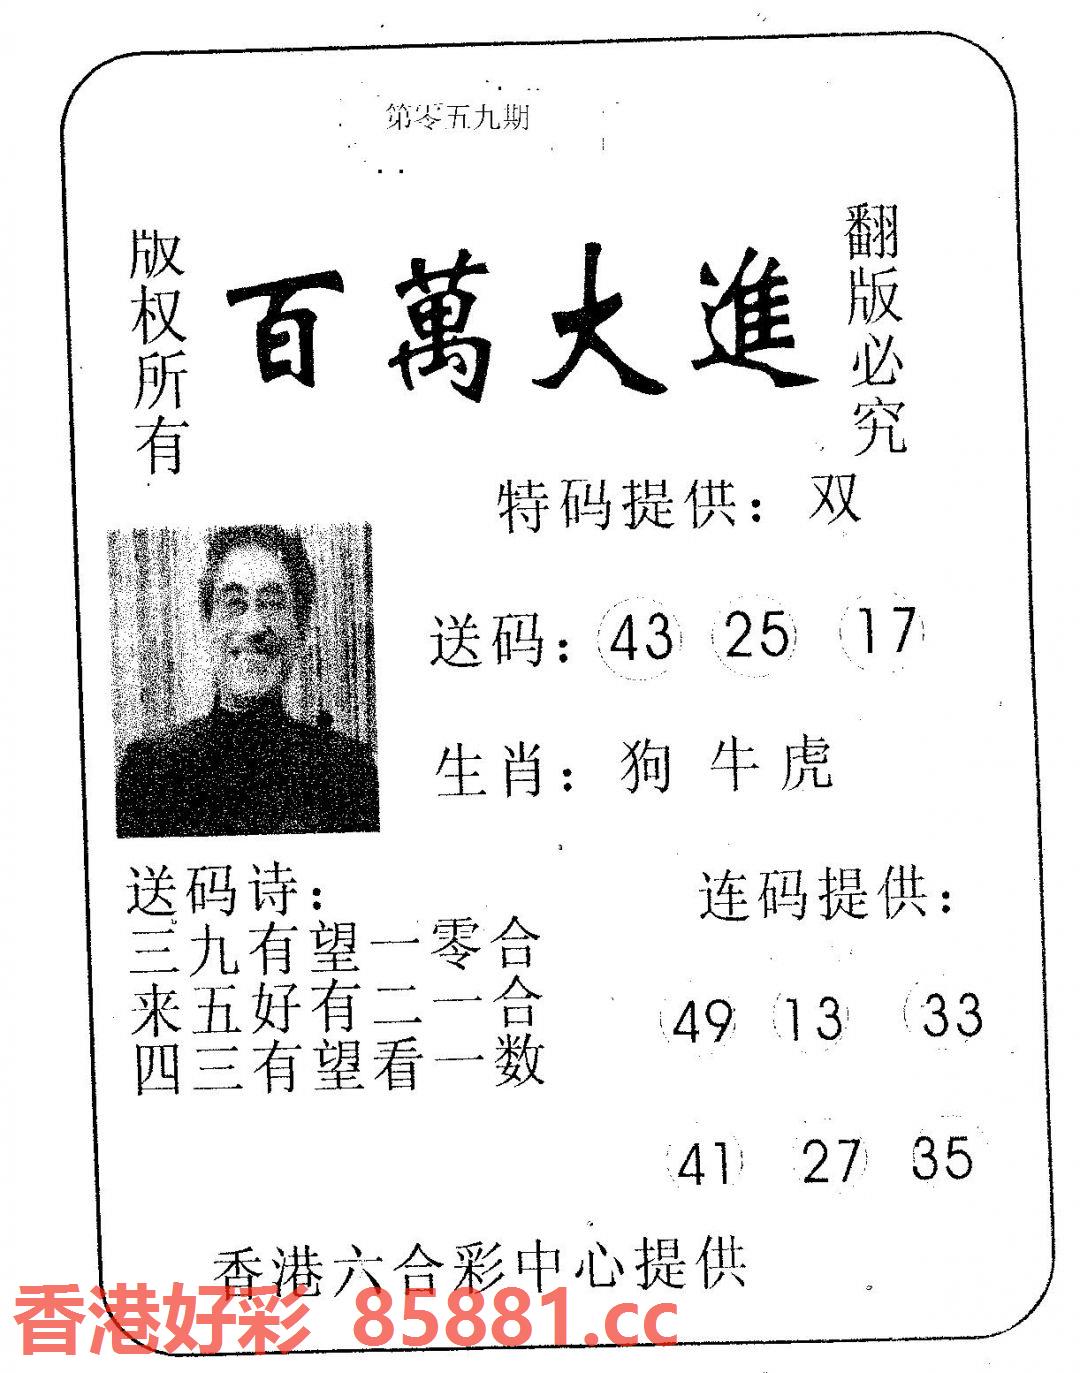 第零五九期
版权所有
百萬大進
翻版必究
特码提供：双
送码：43 25 17
生肖：狗 牛 虎
送码诗：
三九有望一零合
来五好有二一合
四三有望看一数
连码提供：
49 13 33
41 27 35
香港六合彩中心提供
香港好彩 85881.cc